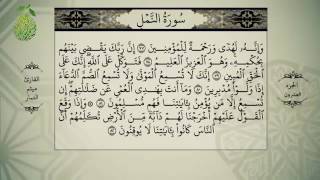 سُورَةُ النَّمْلِ
وَإِنَّهُۥ لَهُدًى وَرَحْمَةٌ لِّلْمُؤْمِنِينَ ٧٧ إِنَّ رَبَّكَ يَقْضِى بَيْنَهُم
بِحُكْمِهِۦ وَهُوَ ٱلْعَزِيزُ ٱلْعَلِيمُ ٧٨ فَتَوَكَّلْ عَلَى ٱللَّهِ إِنَّكَ عَلَى
ٱلْحَقِّ ٱلْمُبِينِ ٧٩ إِنَّكَ لَا تُسْمِعُ ٱلْمَوْتَىٰ وَلَا تُسْمِعُ ٱلصُّمَّ ٱلدُّعَآءَ
إِذَا وَلَّوْا۟ مُدْبِرِينَ ٨٠ وَمَآ أَنتَ بِهَٰدِى ٱلْعُمْىِ عَن ضَلَٰلَتِهِمْ إِن
تُسْمِعُ إِلَّا مَن يُؤْمِنُ بِـَٔايَٰتِنَا فَهُم مُّسْلِمُونَ ٨١ وَإِذَا وَقَعَ
ٱلْقَوْلُ عَلَيْهِمْ أَخْرَجْنَا لَهُمْ دَآبَّةً مِّنَ ٱلْأَرْضِ تُكَلِّمُهُمْ أَنَّ
ٱلنَّاسَ كَانُوا۟ بِـَٔايَٰتِنَا لَا يُوقِنُونَ ٨٢
الجزء
العشرون
القارئ
ميثم
التمار